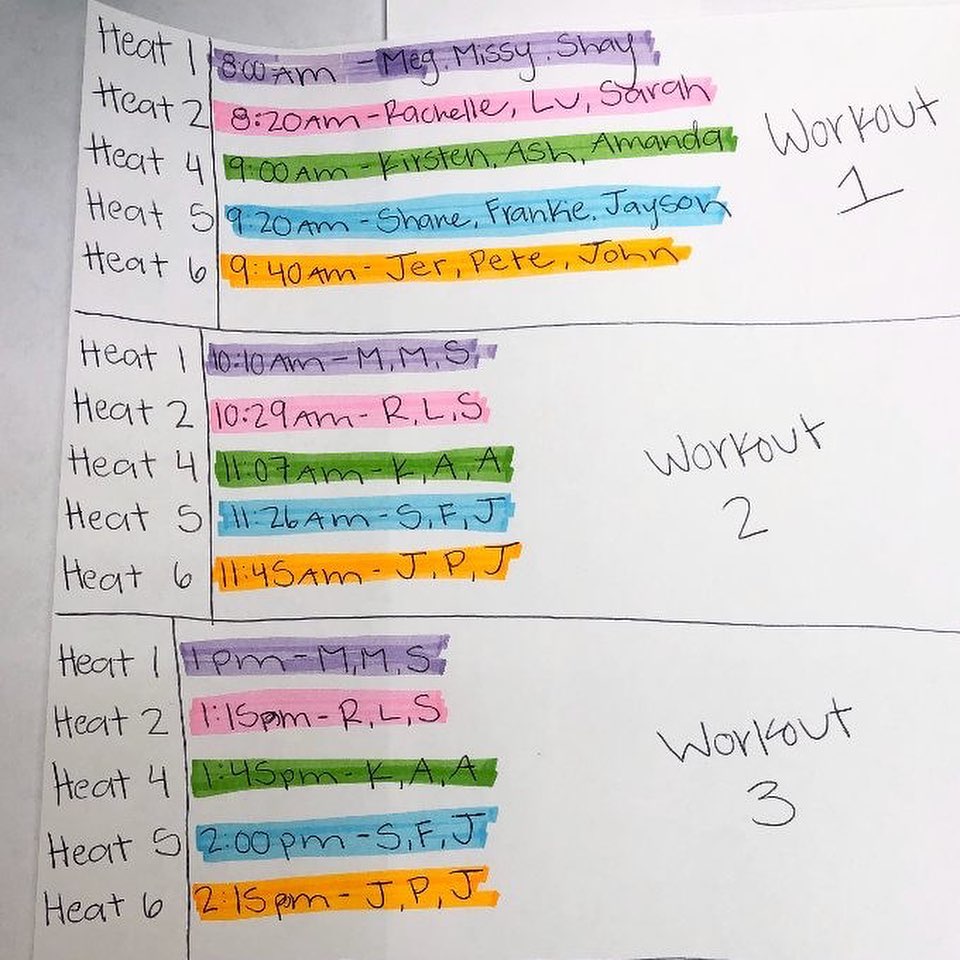 Heat 1 8:00 Am - Meg, Missy, Shay
Heat 2 8:20 Am - Rachelle, Lu, Sarah
Heat 4 9:00 Am - Kirsten, Ash, Amanda
Heat 5 9:20 Am - Shane, Frankie, Jayson
Heat 6 9:40 Am - Jer, Pete, John
Workout
1
Heat 1 10:10 Am - M, M, S
Heat 2 10:29 Am - R, L, S
Heat 4 11:07 Am - K, A, A
Heat 5 11:26 Am - S, F, J
Heat 6 11:45 Am - J, P, J
Workout
2
Heat 1 1pm - M, M, S
Heat 2 1:15pm - R, L, S
Heat 4 1:45pm - K, A, A
Heat 5 2:00pm - S, F, J
Heat 6 2:15pm - J, P, J
Workout
3